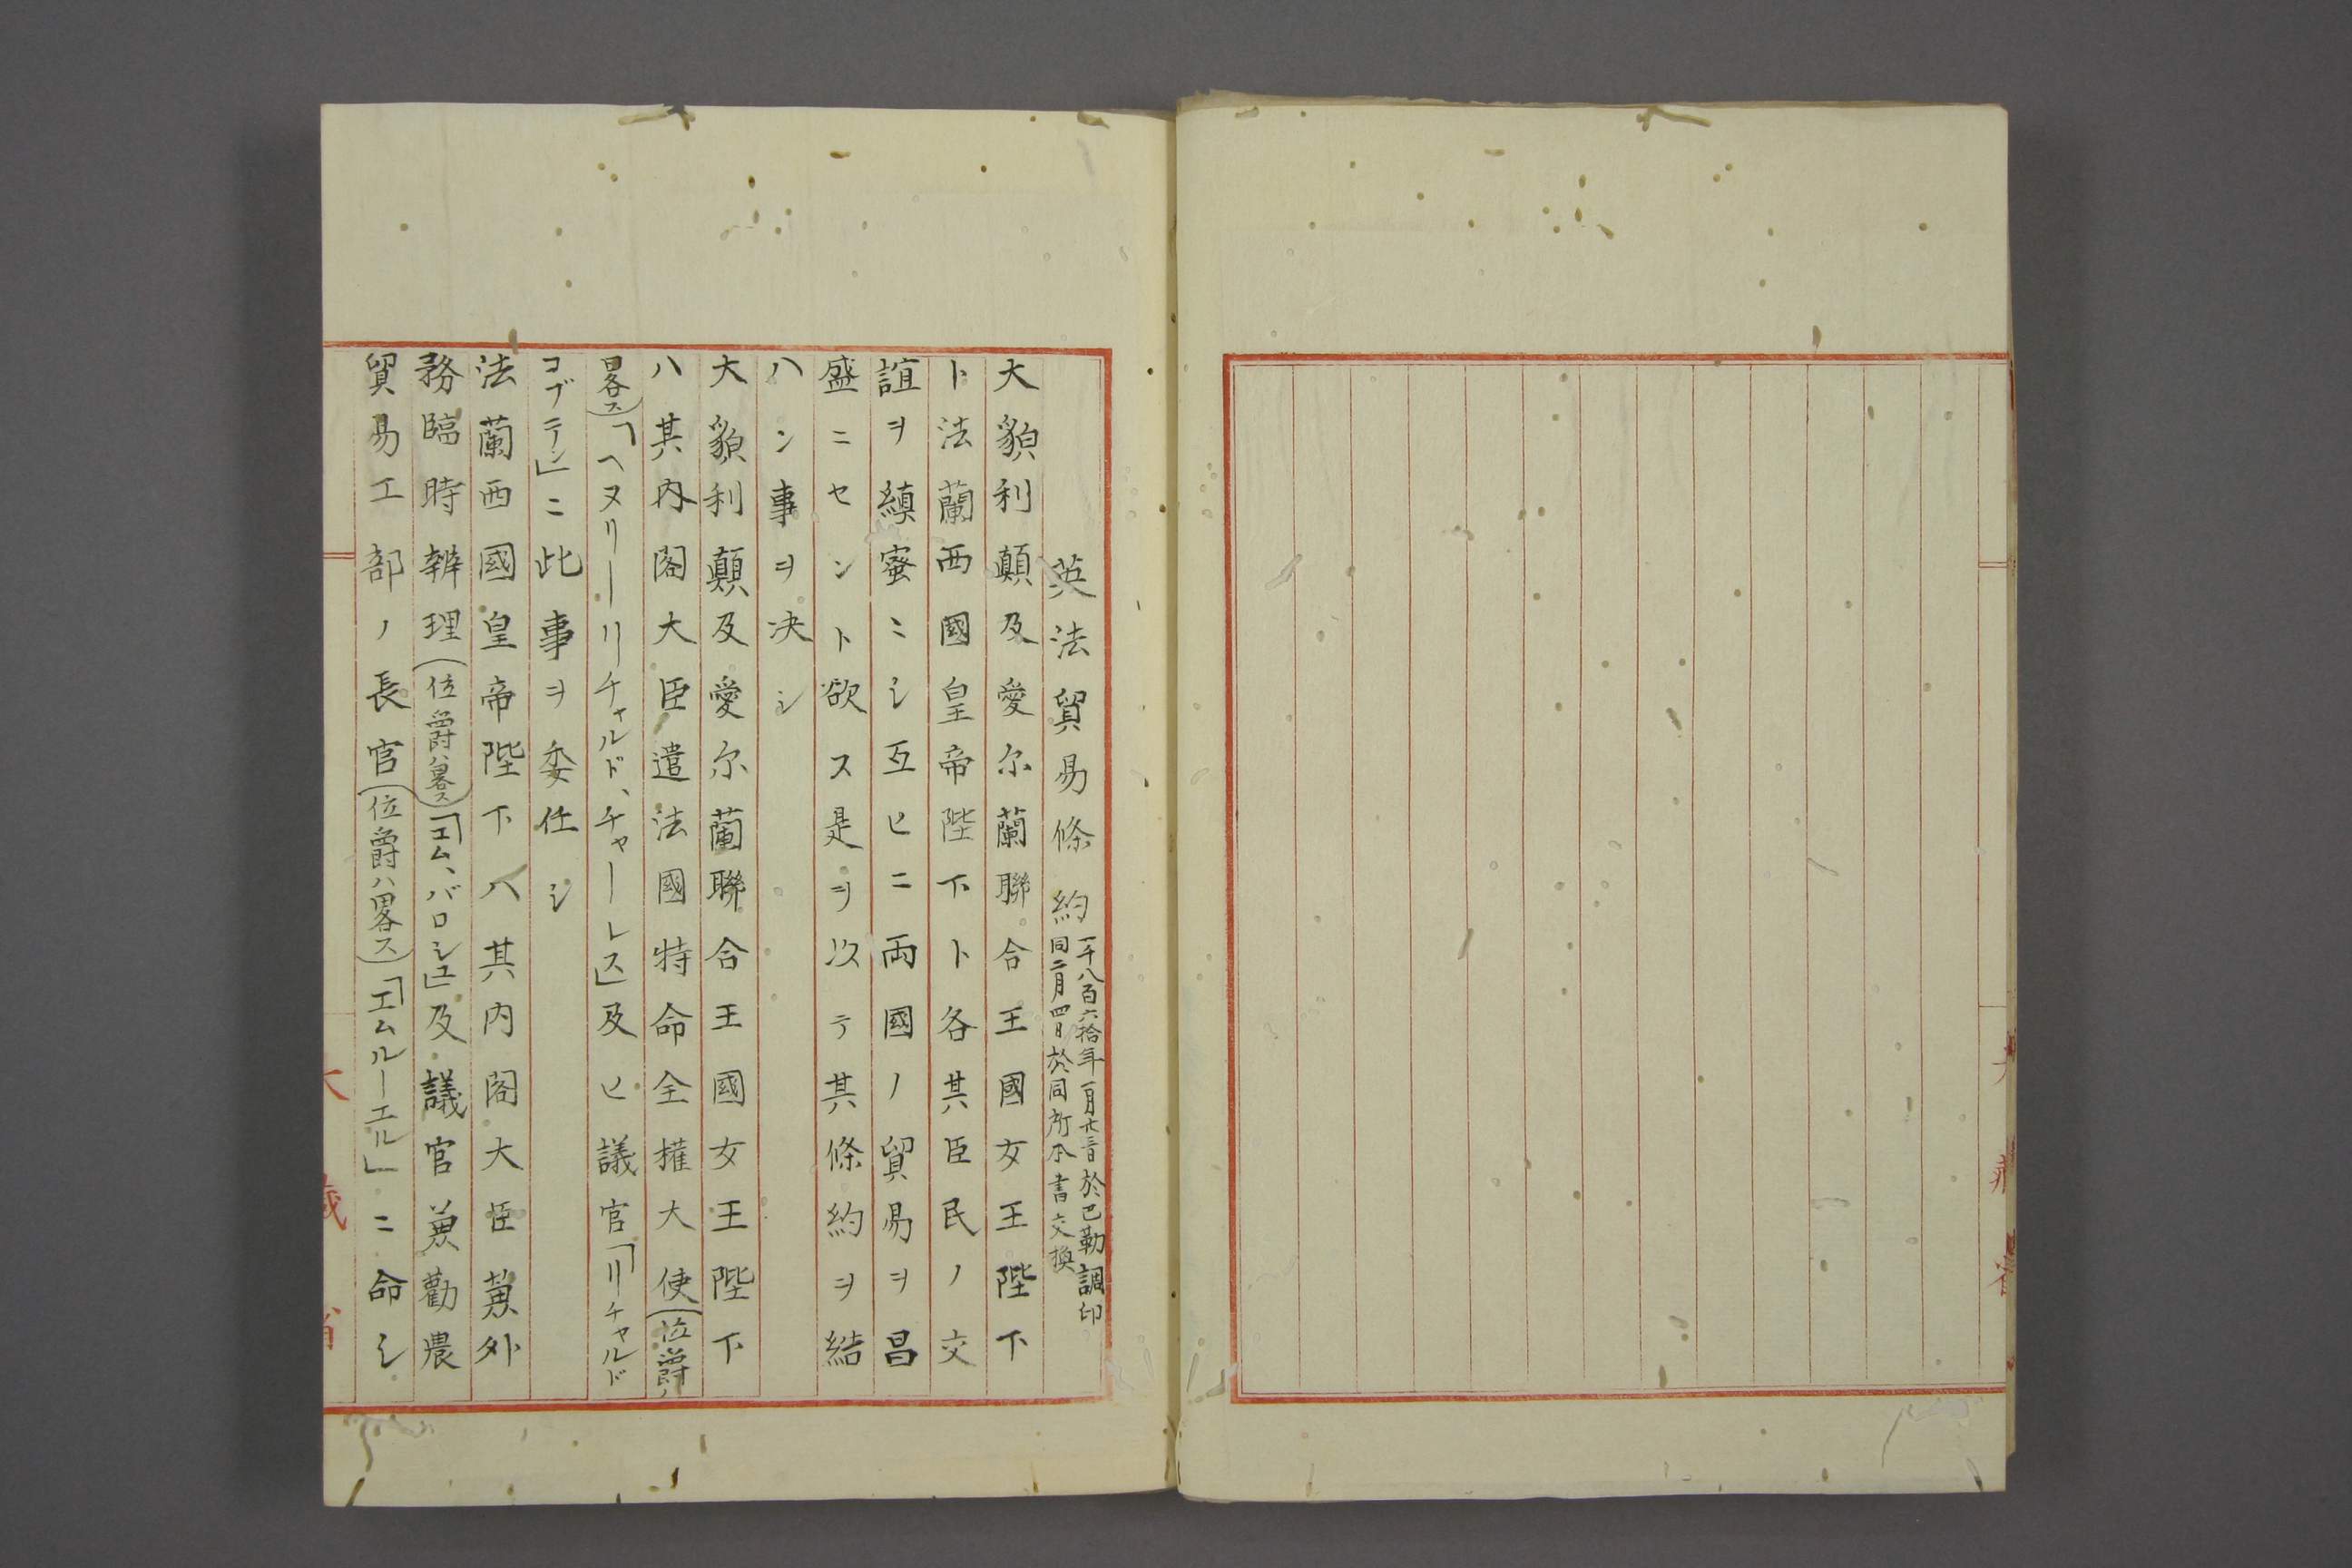 英法貿易條約
一千八百六拾年一月廿三日於巴勒調印
同二月四日於同所本書交換
大貌利顛及愛尓蘭聯合王國女王陛下
ト法蘭西國皇帝陛下ト各其臣民ノ交
誼ヲ縝蜜ニシ互ヒニ両國ノ貿易ヲ昌
盛ニセント欲ス是ヲ以テ其條約ヲ結
ハン事ヲ决シ
大貌利顛及愛尓蘭聯合王國女王陛下
ハ其内閣大臣遣法國特命全權大使(位爵ハ
畧ス)「ヘヌリーリチャルド、チャーレス」及ヒ議官「リチャルド
コブテン」ニ此事ヲ委任シ
法蘭西國皇帝陛下ハ其内閣大臣兼外
務臨時辨理(位爵ハ畧ス)「エム、バロシユ」及議官兼勸農
貿易工部ノ長官(位爵ハ畧ス)「エムルーエル」ニ命シ
大藏省